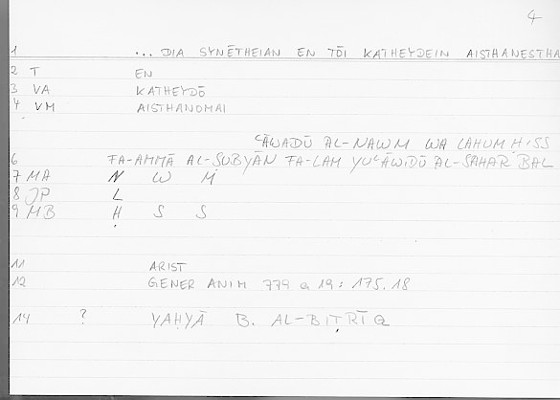 4
1 ... DIA SYNĒTHEIAN EN TŌI KATHEYDEIN AISTHANESTHA
2 T EN
3 VA KATHEYDŌ
4 VM AISTHANOMAI
ʿĀWADŪ AL-NAWM WA LAHUM ḤISS
6 FA-AMMĀ AL-ṢUBYĀN FA-LAM YUʿĀWIDŪ AL-SAHAR BAL
7 MA N W M
8 JP L
9 MB Ḥ S S
11 ARIST
12 GENER ANIM 779 a 19 : 175.18
14 ? YAḤYĀ B. AL-BIṬRĪQ